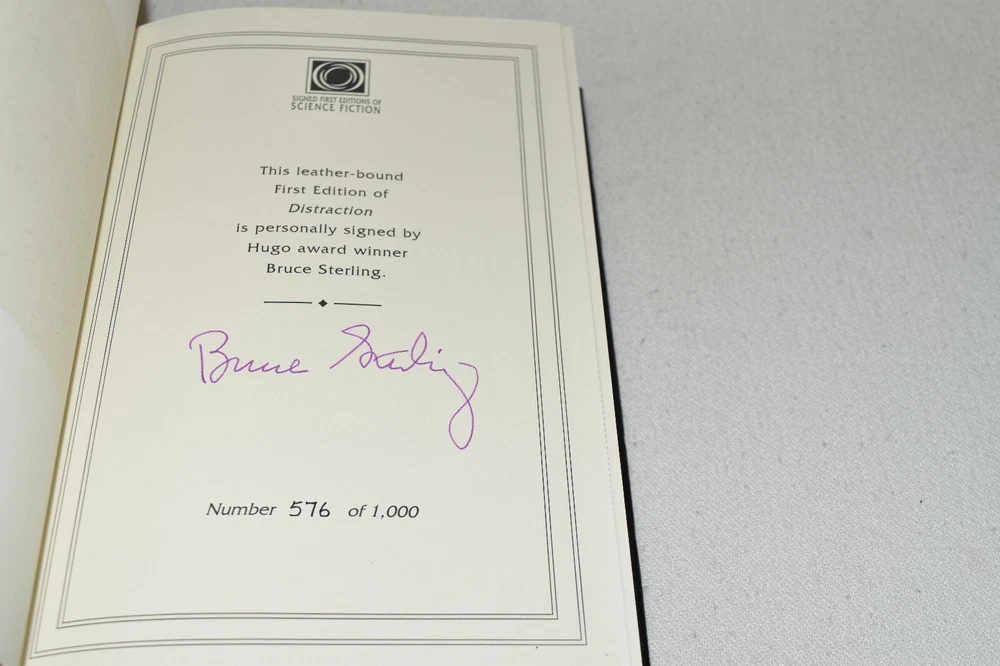 SIGNED FIRST EDITIONS OF
SCIENCE FICTION
This leather-bound
First Edition of
Distraction
is personally signed by
Hugo award winner
Bruce Sterling.
Bruce Sterling
Number 576 of 1,000